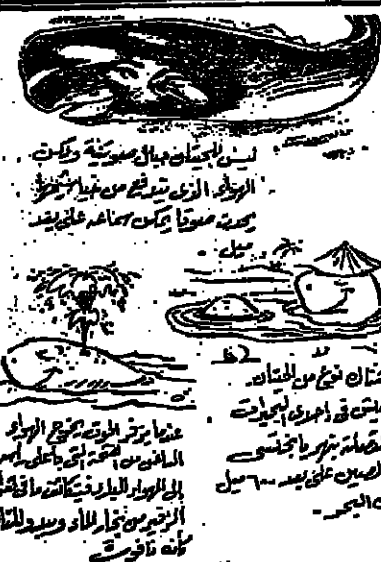 ليس للحيتان حبال صوتية ولكن
الهواء الذي يندفع من خياشيمها
يحدث صوتا يمكن سماعه على بعد
ميل .
هناك نوع من الحيتان
في احدى البحيرات
بنهر يانجتسى
الصين على بعد ٦٠٠ ميل
البحر -
عندما يزفر الحوت يخرج الهواء
الساخن من الفتحة التي بأعلى رأسه
إلى الهواء البارد فيتكاثف ما في
الزفير من بخار الماء ويبدو للناس
كأنه نافورة